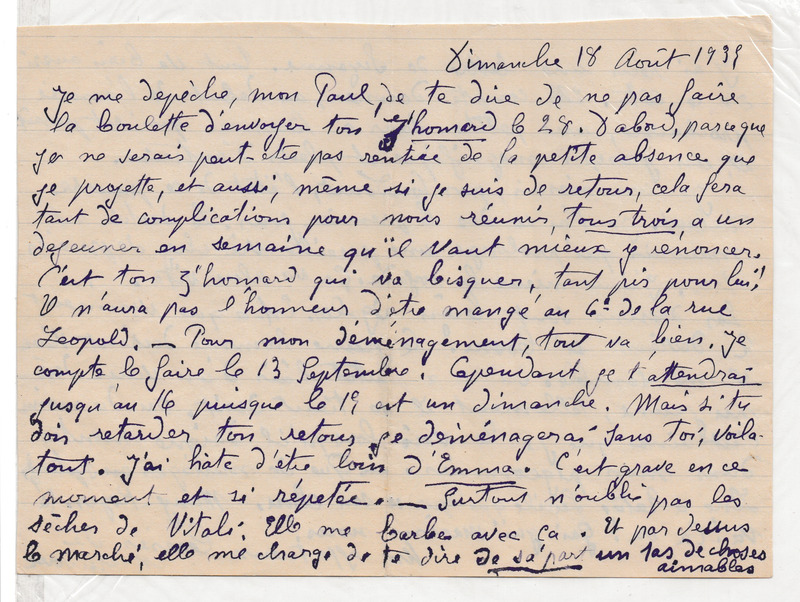 Dimanche 18 Août 1935
Je me depêche, mon Paul, de te dire de ne pas faire
la boulette d'envoyer ton z'homard le 28. D'abord, parceque
je ne serais peut-etre pas rentrée de la petite absence que
je projette, et aussi, même si je suis de retour, cela fera
tant de complications pour nous réunir, tous trois, a un
dejeuner en semaine qu'il vaut mieux y renoncer.
C'est ton z'homard qui va bisquer, tant pis pour lui!
Il n'aura pas l'honneur d'être mangé au 6 de la rue
Leopold. — Pour mon déménagement, tout va bien. Je
compte le faire le 13 Septembre. Cependant je t'attendrai
jusqu'au 16 puisque le 15 est un dimanche. Mais si tu
dois retarder ton retour je déménagerai sans toi, voila-
tout. J'ai hâte d'être loin d'Emma. C'est grave en ce
moment et si répetée. — Surtout n'oublie pas les
sèches de Vitali. Elle me barbe avec ça. Et par dessus
le marché, elle me charge de te dire de sa part un tas de choses
aimables